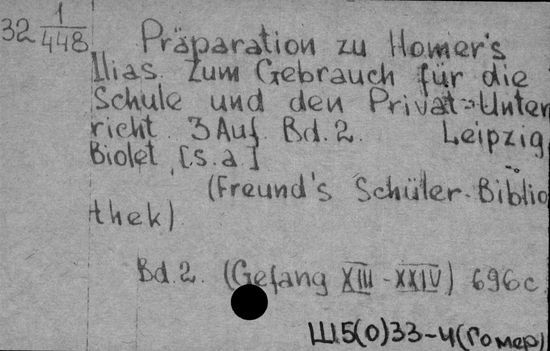 32 1/448
Präparation zu Homer's
Ilias. Zum Gebrauch für die
Schule und den Privat-Unter
richt. 3 Auf. Bd. 2. Leipzig,
Biolet, [s.a]
(Freund's Schüler-Biblio
thek).
Bd. 2. (Gefang XIII - XXIV) 696c
Ш5(0)33-4(Гомер)